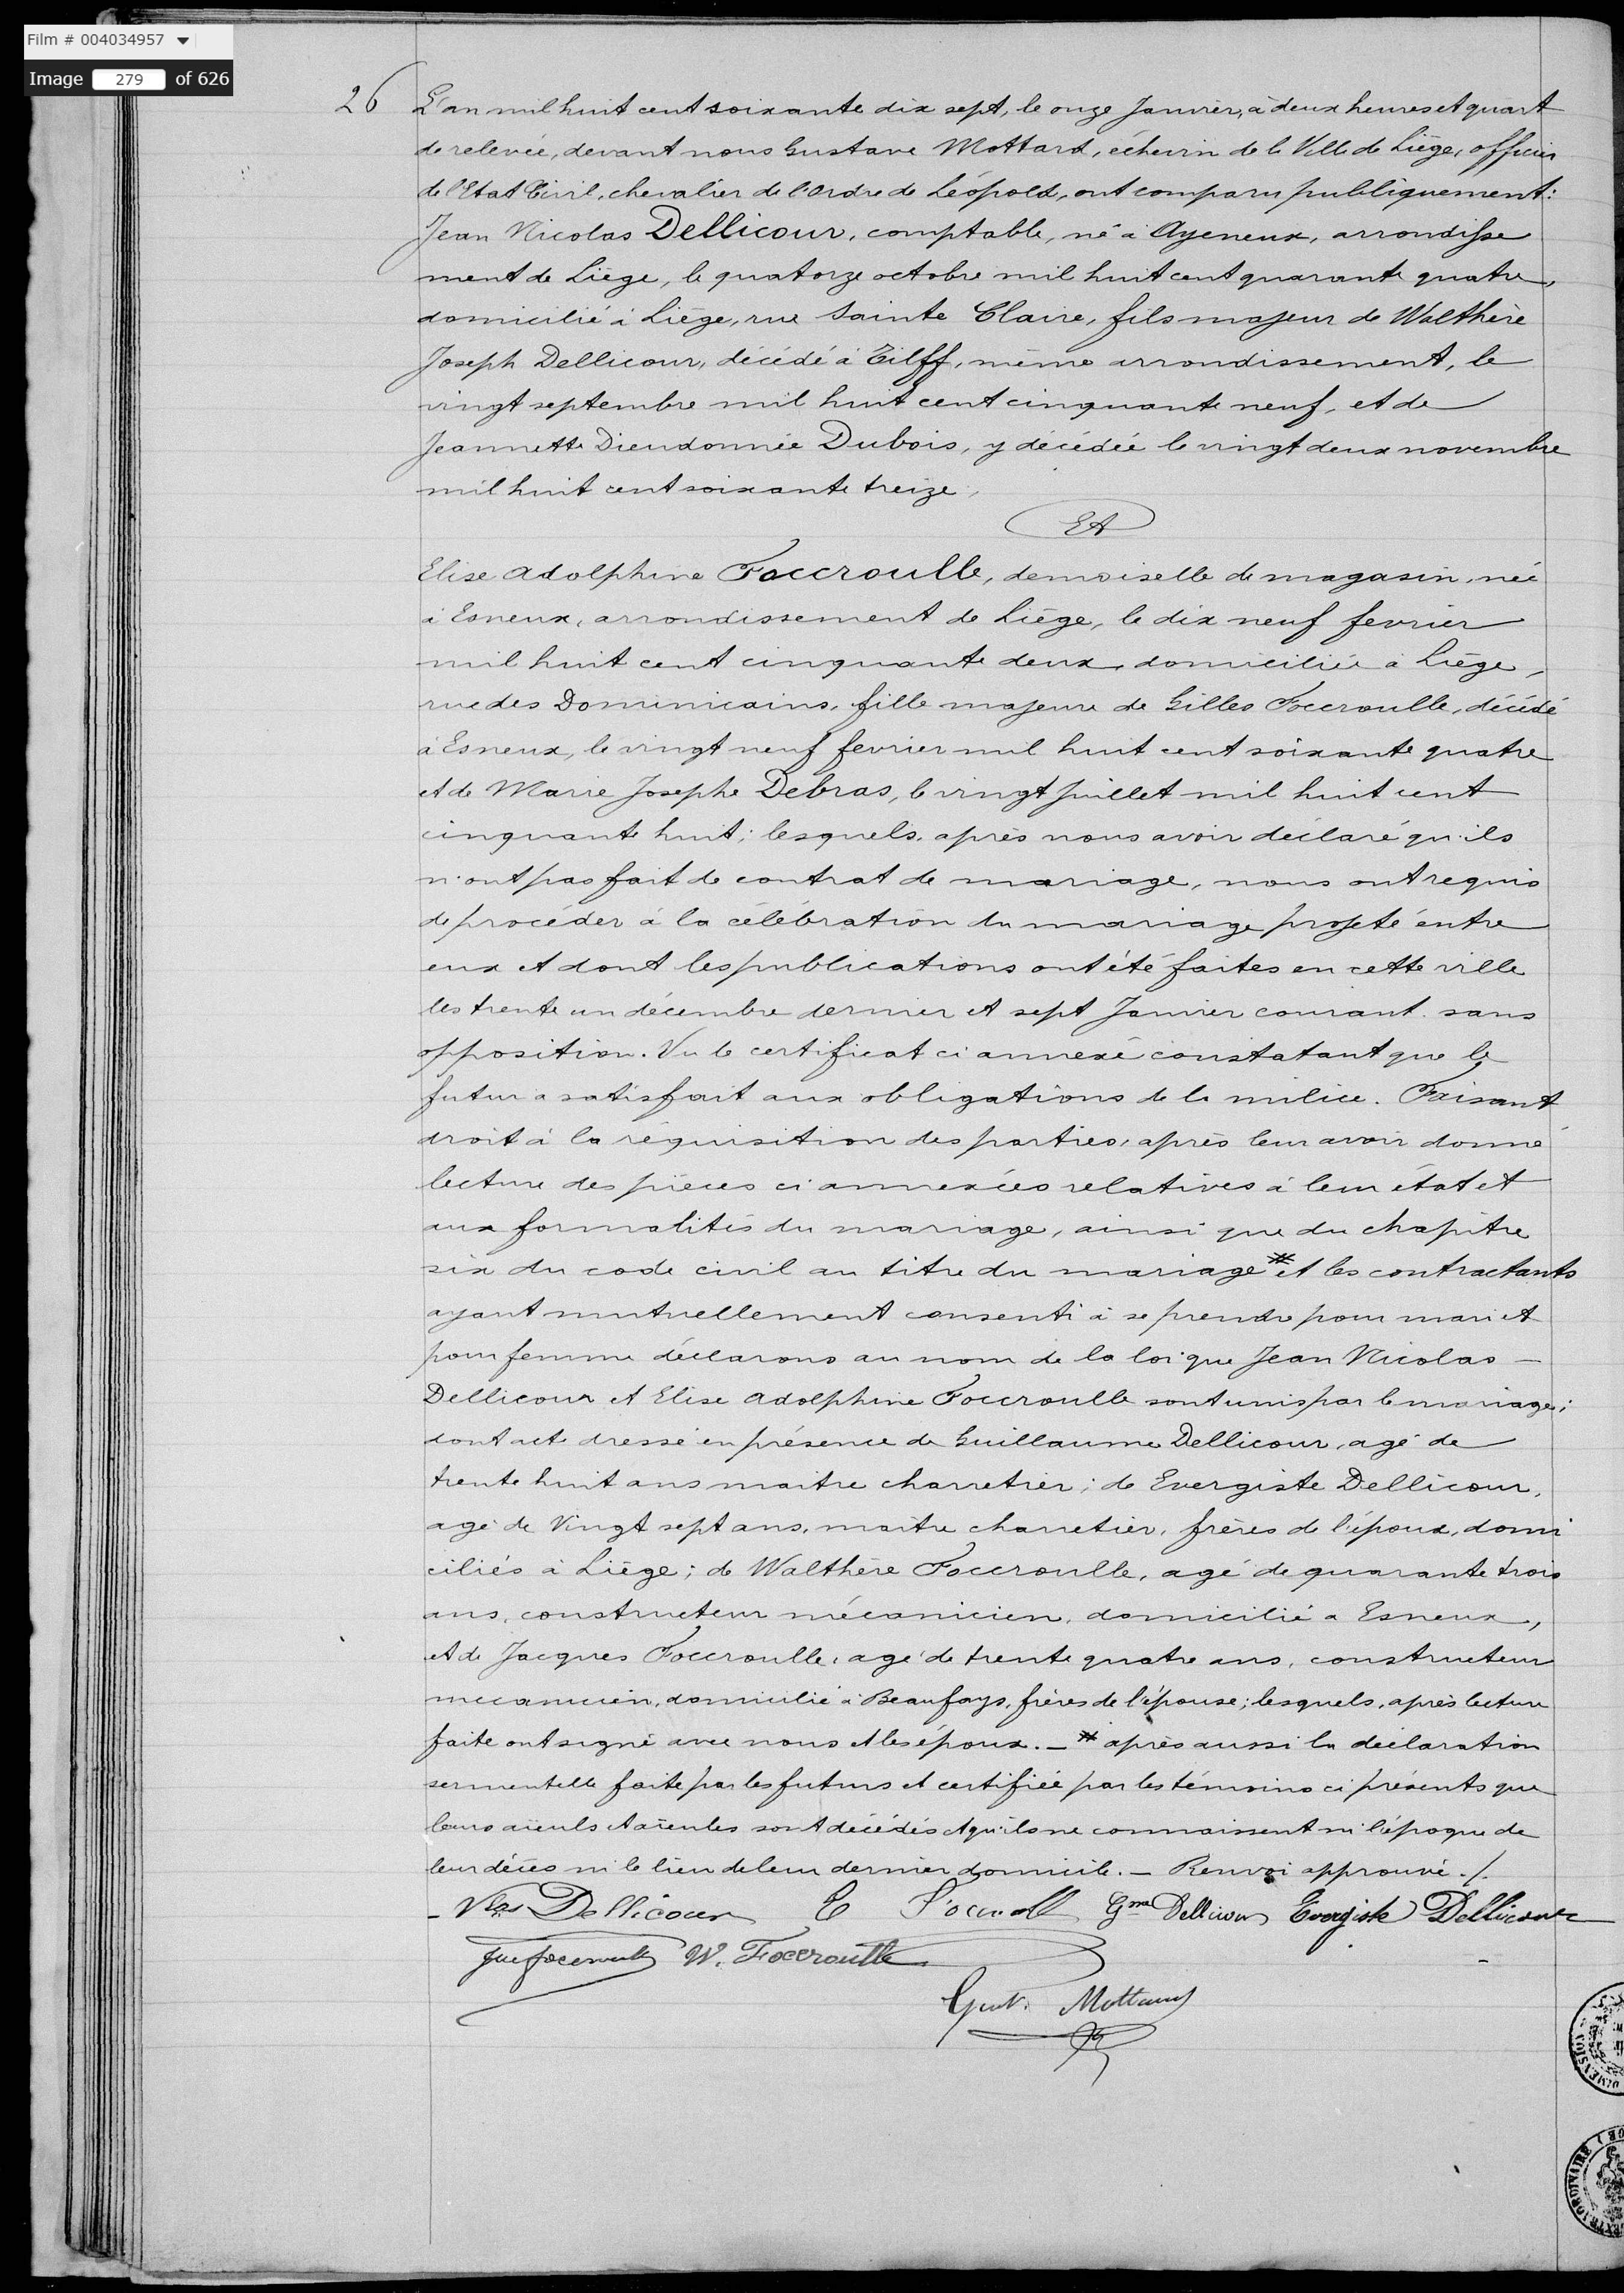 Film # 004034957
Image 279 of 626
26
L'an mil huit cent soixante dix sept, le onze Janvier, à deux heures et quart
de relevée, devant nous Gustave Mottard, échevin de la Ville de Liége, officier
de l'Etat Civil, chevalier de l'Ordre de Léopold, ont comparu publiquement:
Jean Nicolas Dellicour, comptable, né à Ayeneux, arrondisse
ment de Liége, le quatorze octobre mil huit cent quarante quatre,
domicilié à Liége, rue Sainte Claire, fils majeur de Walthère
Joseph Dellicour, décédé à Tilff, même arrondissement, le
vingt septembre mil huit cent cinquante neuf, et de
Jeannette Dieudonnée Dubois, y décédée le vingt deux novembre
mil huit cent soixante treize,
Et
Elise Adolphine Foccroulle, demoiselle de magasin, née
à Esneux, arrondissement de Liége, le dix neuf fevrier
mil huit cent cinquante deux, domiciliée à Liége,
rue des Dominicains, fille majeure de Gilles Foccroulle, décédé
à Esneux, le vingt neuf fevrier mil huit cent soixante quatre
et de Marie Josephe Debras, le vingt Juillet mil huit cent
cinquante huit; lesquels, après nous avoir déclaré qu'ils
n'ont pas fait de contrat de mariage, nous ont requis
de procéder à la célébration du mariage projeté entre
eux et dont les publications ont été faites en cette ville
les trente un décembre dernier et sept Janvier courant sans
opposition. Vu le certificat ci annexé constatant que le
futur a satisfait aux obligations de la milice. Faisant
droit à la réquisition des parties, après leur avoir donné
lecture des pièces ci annexées relatives à leur état et
aux formalités du mariage, ainsi que du chapitre
six du code civil au titre du mariage # et les contractants
ayant mutuellement consenti à se prendre pour mari et
pour femme déclarons au nom de la loi que Jean Nicolas —
Dellicour et Elise Adolphine Foccroulle sont unis par le mariage;
dont acte dressé en présence de Guillaume Dellicour, agé de
trente huit ans maitre charretier; de Evergiste Dellicour,
agé de Vingt sept ans, maitre charretier, frères de l'époux, domi
ciliés à Liége; de Walthère Foccroulle, agé de quarante trois
ans, constructeur mécanicien, domicilié a Esneux,
et de Jacques Foccroulle, agé de trente quatre ans, constructeur
mecanicien, domicilié à Beaufays, frères de l'épouse; lesquels, après lecture
faite ont signé avec nous et les époux. — # après aussi la déclaration
sermentelle faite par les futurs et certifiée par les témoins ci présents que
leurs aïeuls et aïeules sont décédés et qu'ils ne connaissent ni l'époque de
leur décès ni le lieu de leur dernier domicile. — Renvoi approuvé ./.
Nlas Dellicour E Foccroulle Gme Dellicour Evergiste Dellicour
Jqes foccroulle W. Foccroulle
Gust. Mottard
DIMENSION
EXTRAORDINAIRE